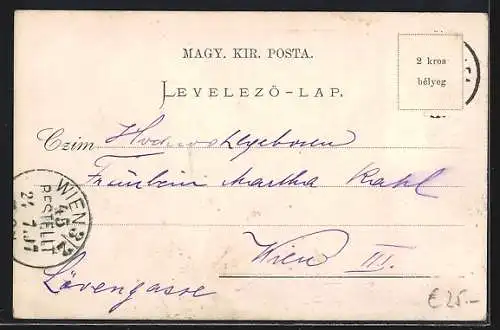 MAGY. KIR. POSTA.
LEVELEZŐ-LAP.
2 kros
bélyeg
Czim Hochwohlgeboren
Fräulein Martha Kahl
Wien III.
Lövengasse
WIEN 3/2
45
BESTELLT
€ 25.-